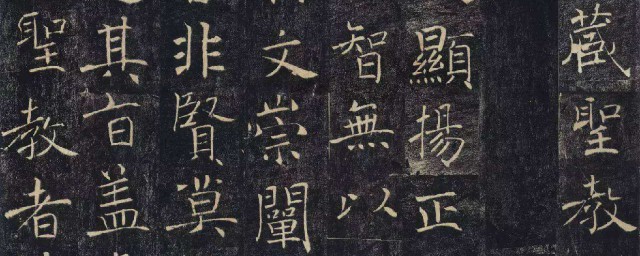 藏聖教
顯揚正
智無以
文崇闡
非賢莫
其旨盖
聖教者